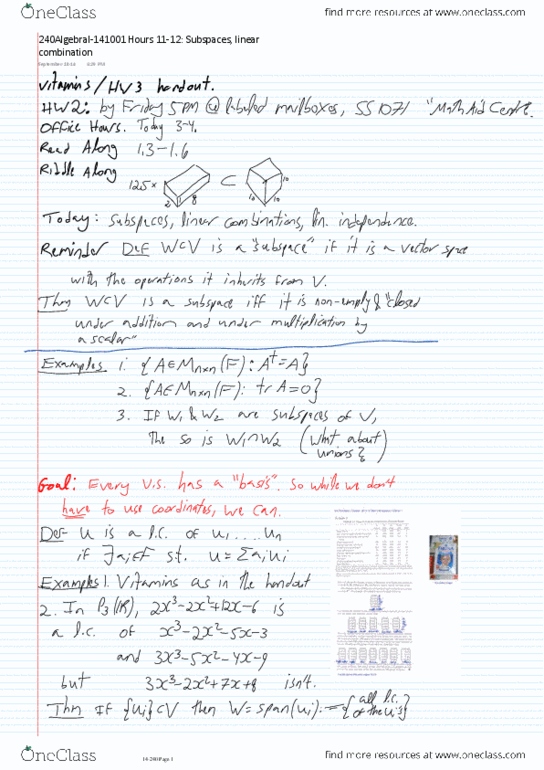 OneClass
find more resources at www.oneclass.com
240AlgebraI-141001 Hours 11-12: Subspaces, linear
combination
Vitamins/HW3 handout.
HW2: by Friday 5PM @ labeled mailboxes, SS 1071 "Math Aid Centre.
Office Hours. Today 3-4.
Read Along 1.3-1.6
Riddle Along
125 × ⊂
1 8 10 10 10
Today: Subspaces, linear combinations, lin. independence.
Reminder Def W⊂V is a "subspace" if it is a vector space
with the operations it inherits from V.
Thm W⊂V is a subspace iff it is non-empty & "closed
under addition and under multiplication by
a scalar"
Examples 1. {A∈Mn×n(F): Aᵗ=A}
2. {A∈Mn×n(F): tr A=0}
3. If W₁ & W₂ are subspaces of V,
The so is W₁∩W₂ (What about
unions?)
Goal: Every v.s. has a "basis". So while we don't
have to use coordinates, we can.
Def- u is a l.c. of u₁....un
if ∃ai∈F s.t. u=Σaiui
Examples 1. Vitamins as in the handout
2. In P₃(ℝ), 2x³-2x²+12x-6 is
a l.c. of x³-2x²-5x-3
and 3x³-5x²-4x-9
but 3x³-2x²+7x+8 isn't.
Thm If {ui}⊂V then W=span(ui):={all l.c.
of the ui's}
14-240 Page 1
OneClass
find more resources at www.oneclass.com